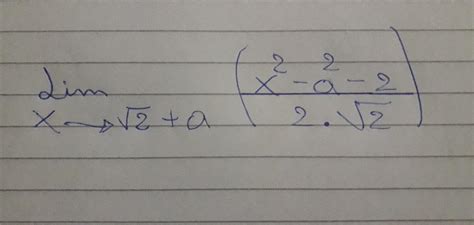 Lim x→√2+a ( (x² - a² - 2) / (2·√2) )